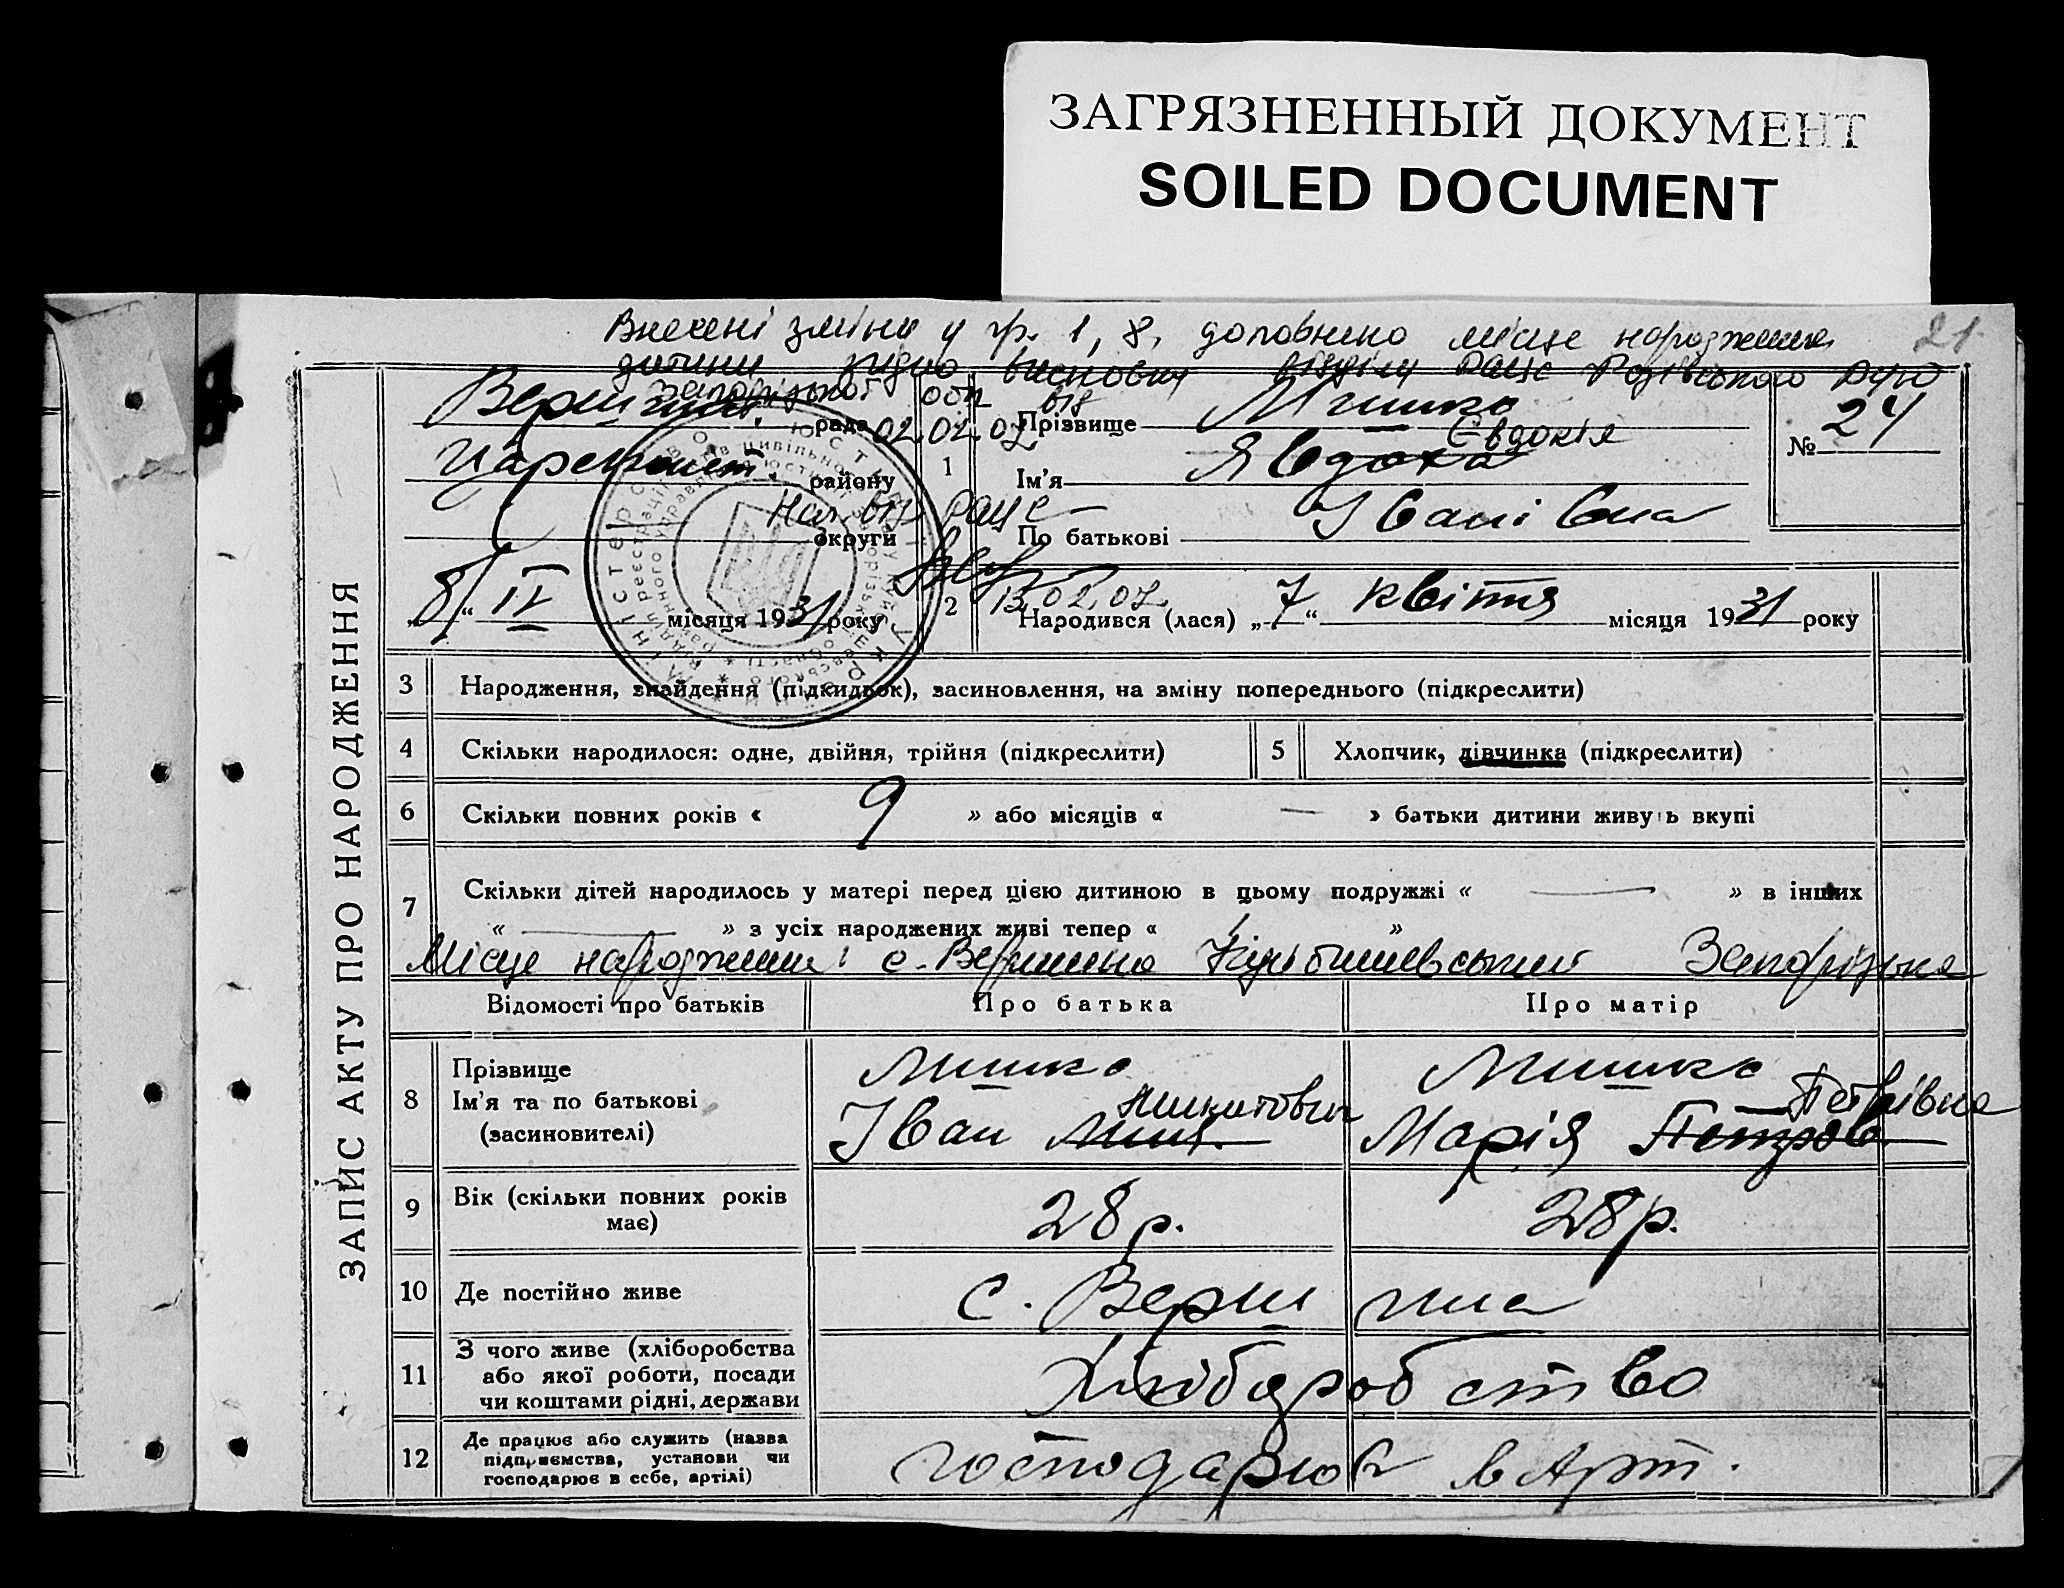 ЗАГРЯЗНЕННЫЙ ДОКУМЕНТ
SOILED DOCUMENT
21.
Внесені зміни у гр. 1, 8, доповнено місце народження
дитини згідно висновку відділу РАЦС Розівського РУЮ
Запорізької обл від
02.02.07
Нач. від РАЦС
13.02.07
ЗАПИС АКТУ ПРО НАРОДЖЕННЯ
рада
району
округи
„8“ IV місяця 1931 року
1 Прізвище Мишко
Ім'я Явдоха Євдокія
По батькові Іванівна
№ 24
2 Народився (лася) „7“ квітня місяця 1931 року
3 Народження, знайдення (підкидьок), засиновлення, на зміну попереднього (підкреслити)
4 Скільки народилося: одне, двійня, трійня (підкреслити) 5 Хлопчик, дівчинка (підкреслити)
6 Скільки повних років « 9 » або місяців « — » батьки дитини живуть вкупі
7 Скільки дітей народилось у матері перед цією дитиною в цьому подружжі « — » в інших
« — » з усіх народжених живі тепер « »
Місце народження: с. Вершина Куйбишевський Запорізька
Відомості про батьків Про батька Про матір
8 Прізвище Мишко Мишко
Ім'я та по батькові Іван Микитович Марія Петрівна
(засиновителі)
9 Вік (скільки повних років має) 28 р. 28 р.
10 Де постійно живе с. Вершина
11 З чого живе (хліборобства
або якої роботи, посади
чи коштами рідні, держави Хліборобство
12 Де працює або служить (назва
підприємства, установи чи
господарює в себе, артілі) господарюв в Арт.